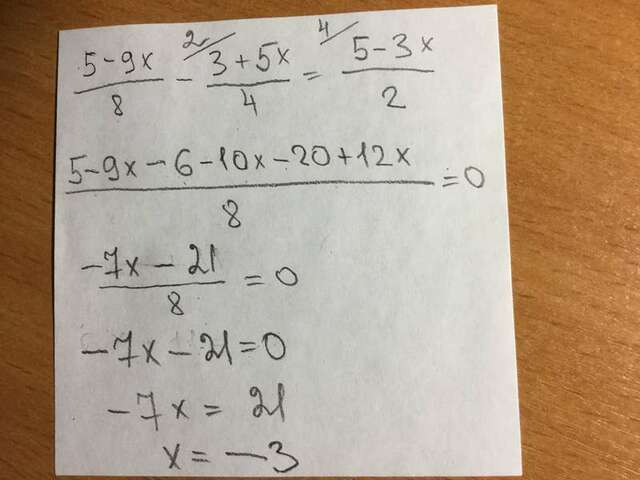 (5-9x)/8 - 2/ (3+5x)/4 = 4/ (5-3x)/2
(5-9x-6-10x-20+12x)/8 = 0
(-7x-21)/8 = 0
-7x-21=0
-7x = 21
x = -3